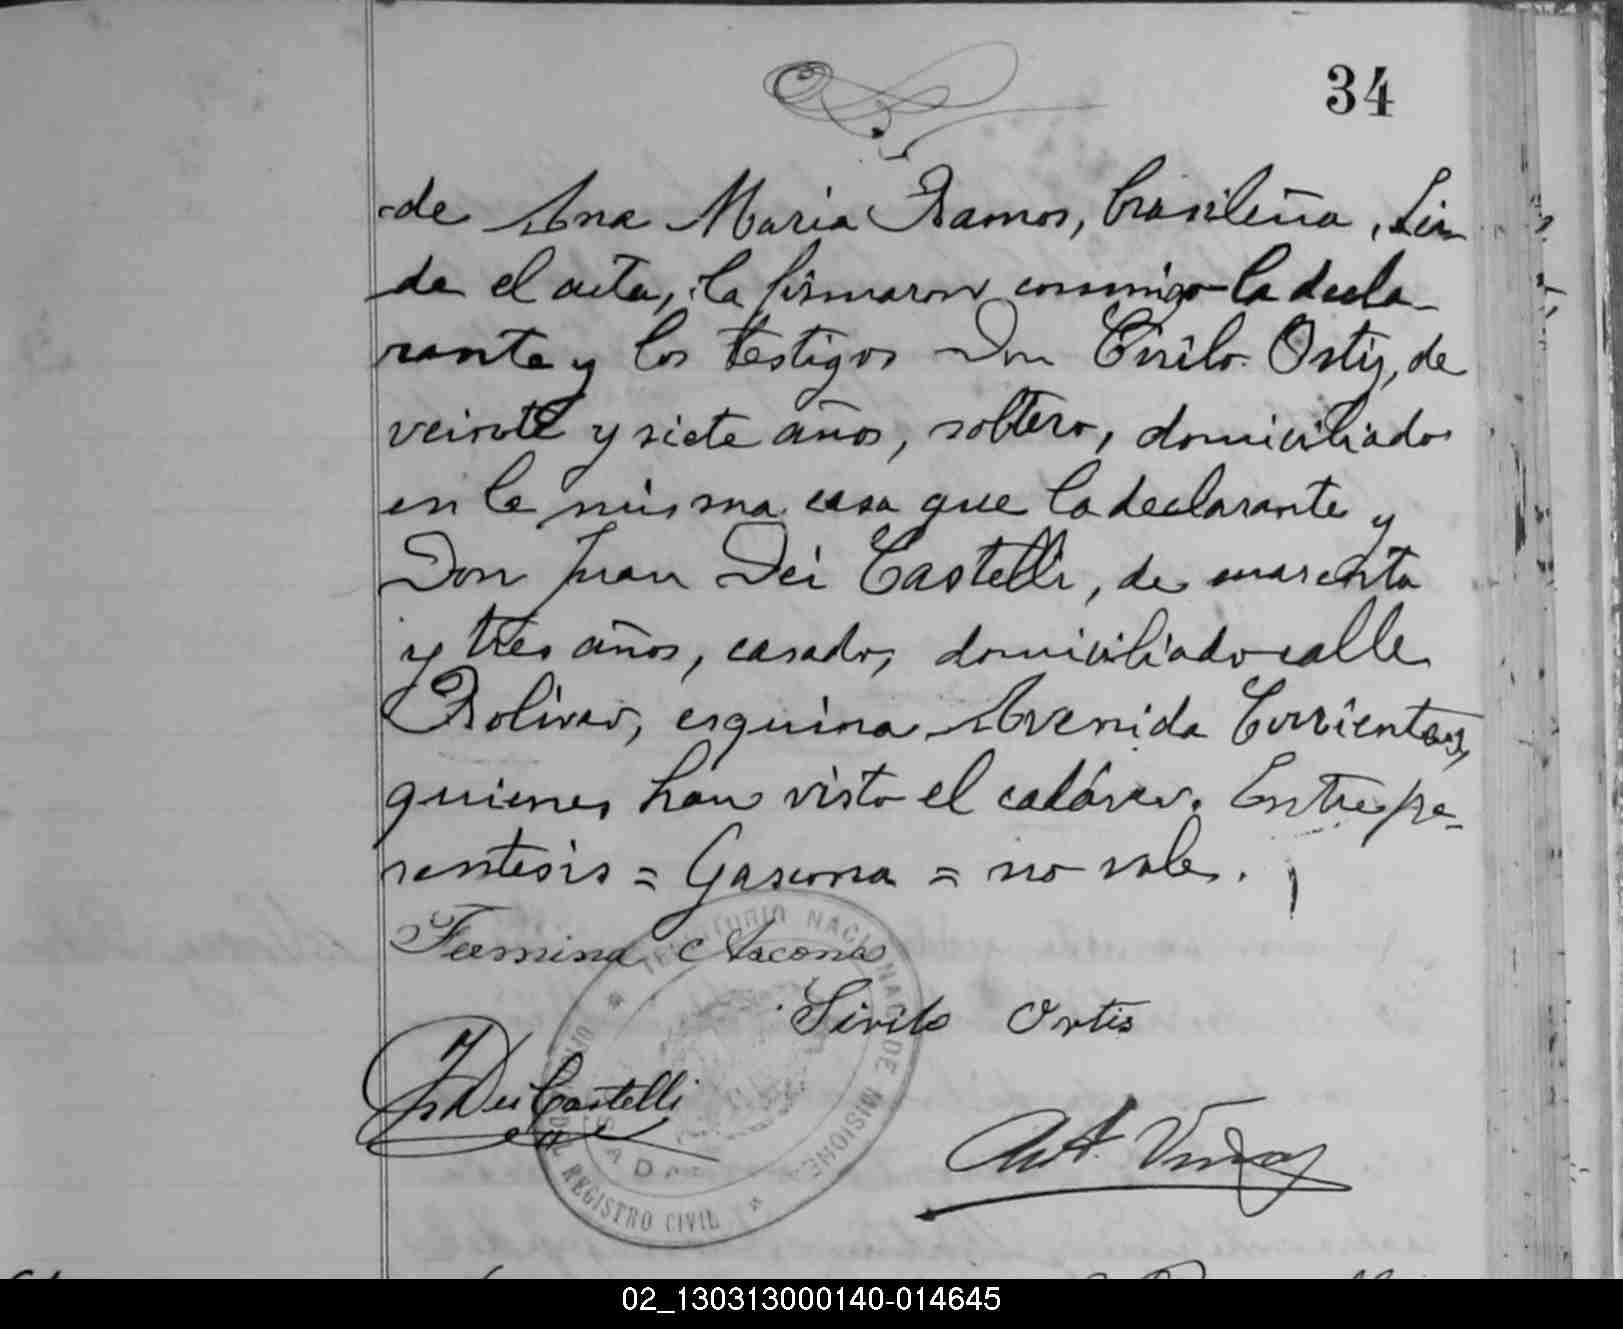 34
de Ana Maria Ramos, brasileña, Lei-
da el acta, la firmaron conmigo la decla-
rante y los testigos Don Cirilo Ortiz, de
veinte y siete años, soltero, domiciliado
en la misma casa que la declarante y
Don Juan Dei Castelli, de cuarenta
y tres años, casado, domiciliado calle
Bolivar, esquina Avenida Corrientes,
quienes han visto el cadáver. Entre pa-
rentesis = Gascona = no vale.
Fermina Ascona
Sirilo Ortis
J Dei Castelli
TERRITORIO NACIONAL DE MISIONES
DEL REGISTRO CIVIL